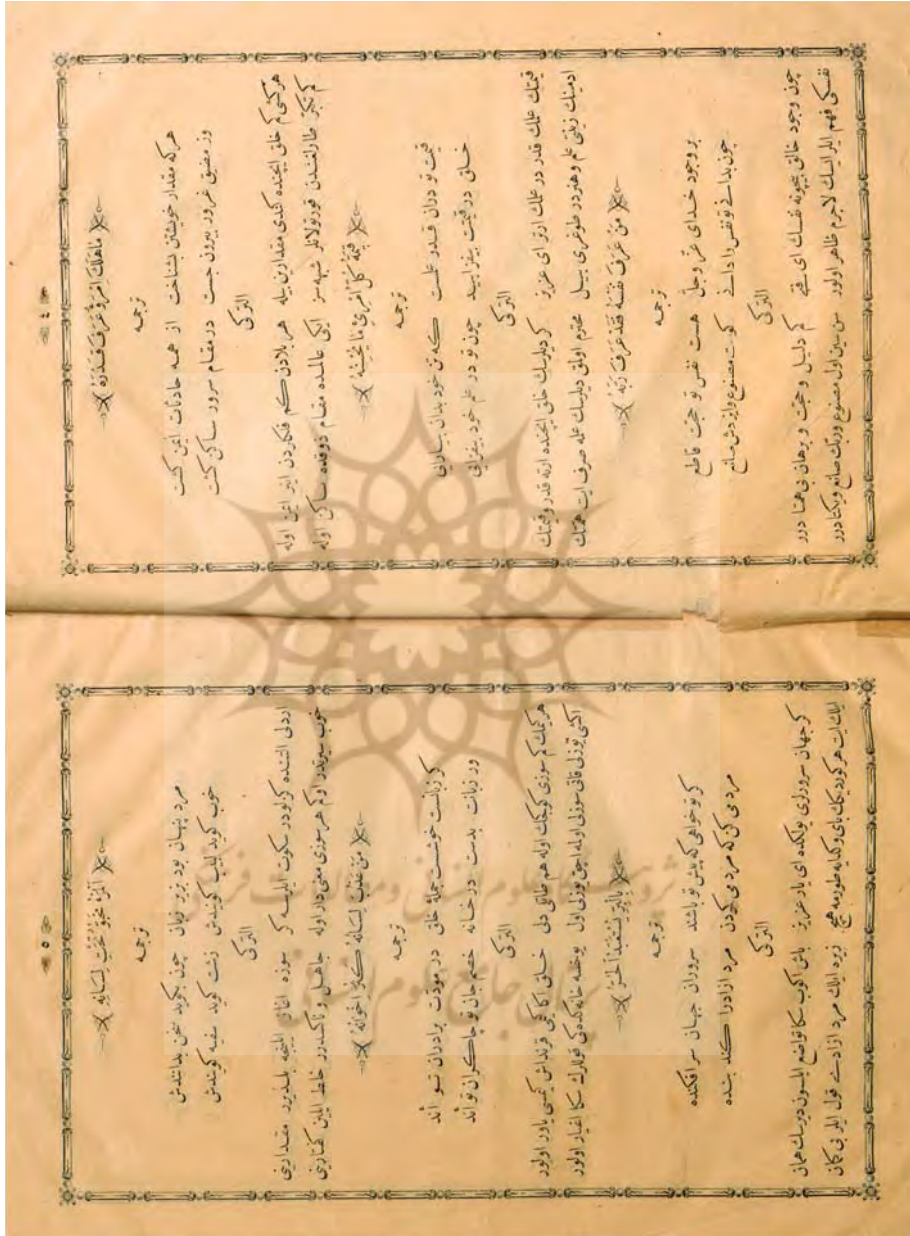 ٤
ماهلك امرؤ عرف قدره
ترجمه
هركه مقدار خويشتن بشناخت از همه حادثات ايمن كشت
وز مضيق غرور بيرون جست در مقام سرور ساكن كشت
التركى
هركشى كم خلق ايچنده كندى مقدارين بيله هر بلادن كم فلكاردن اينر ايمن اوله
كم تكبر طارلغندن قورتولانلر شبهه سز ايكى عالمده مقام ذوقده ساكن اوله
قيمة كل امرئ ما يحسنه
ترجمه
قيمت تو دران قدر علمست كه تو خود بدان بيارايى
خلق در قيمتت بيفزايند چون تو در علم خود بيفزايى
التركى
كر ديلرسك خلق ايچنده ارته قدر و قيمتك قيمتك علمك قدر در علمك ارتر اى عزيز
ادمينك زينتى علم و هنردر طوغرى بيل محترم اولمق ديلرسك علمه صرف ايت همتك
من عرف نفسه فقد عرف ربه
ترجمه
بر وجود خداى عز وجل هست نفس تو حجت قاطع
چون بدانى تو نفس را دانى كوست مصنوع وايزدش صانع
التركى
چون وجود خالق بيچونه نفسك اى فتى كم دليل و حجت و برهان بى همتا درر
نفسكى فهم ايلر ايسك لاجرم ظاهر اولور سن سين اول مصنوع وربك صانع ويكتا درر
٥
المرء مخبوّ تحت لسانه
ترجمه
مرد پنهان بود بزير زبان چون بكويد سخن بدانندش
خوب كويد لبيب كويندش زشت كويد سفيه كويندش
التركى
اردلى التنده كزلودر سكوت ايليسه كر سوزه اغاز ايلينجه بلديرر مقدارينى
خوب سيرتدر اوكم هر سوزى معنى دار اوله جاهل و ناكسدرر خلط ايلين كفتارينى
من عذب لسانه كثر اخوانه
ترجمه
كر زبانت خوشست جملۀ خلق در مودت برادران تو اند
ور زبانت بدست در خانه خصم جان تو چاكران تو اند
التركى
هر كيمك كم سوزى كوچك اوله هم طاتلى دلى خلق اكا كمى قرنداش كميسى ياور اولور
اكشى يوزلى قاتى سوزلى اوله اچق يوزلى اول يوخسه خانه كده كى قوللرك سكا اغيار اولور
بالبر يستعبد الحر
ترجمه
كر تو خواهى كه پيش تو باشند سروران جهان سر افكنده
مردمى كن كه مردمى كردن مرد ازاد را كند بنده
التركى
كر جهان سرورلرى يولكده اى يار عزيز باش اكوب سكا تواضع ايلسون ديرسك همان
ايلك ايت هر كوردیكك باى وكدايه طورمه هيچ زيره ايلك مرد ازادى قول ايلر بى كمان
ثروت علوم انسانى ومطالعات فرهنگى
پرتال جامع علوم انسانى